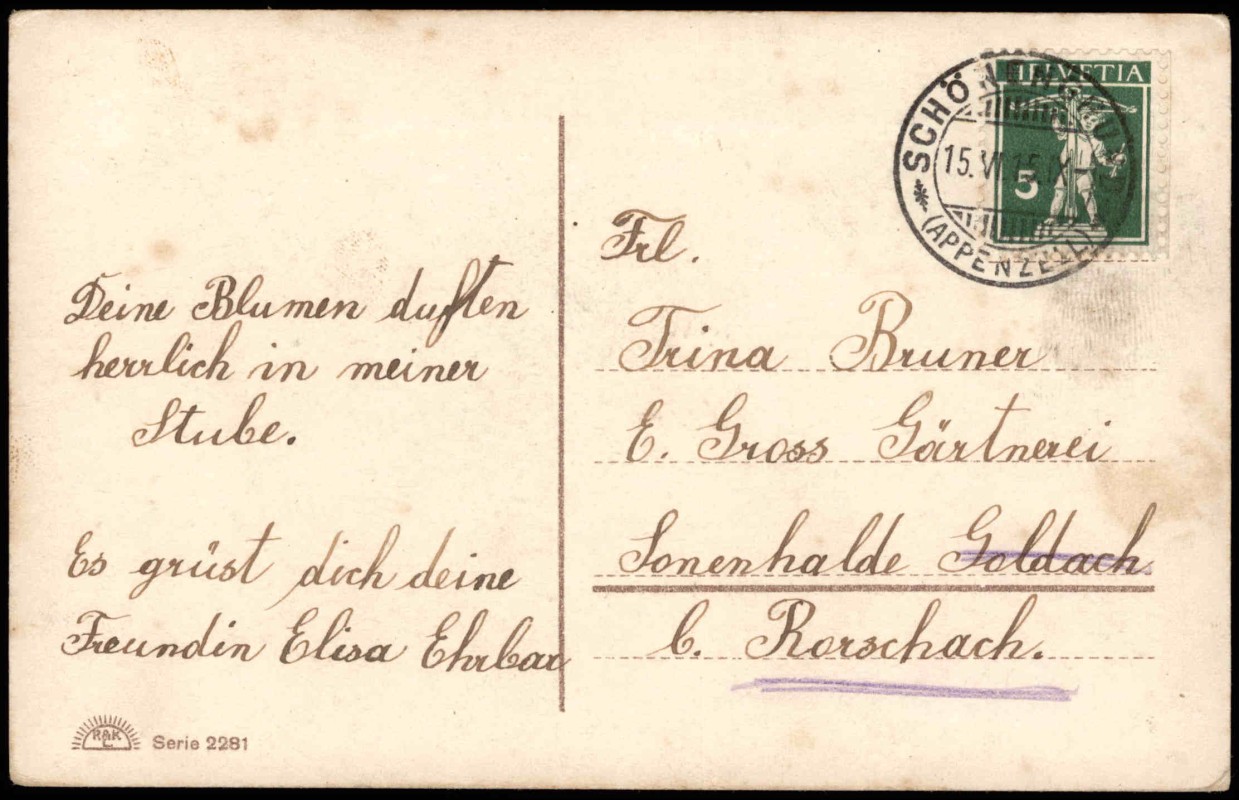 HELVETIA
5
SCHÖNENGRUND
15. VI. 15. X-
(APPENZELL)
Deine Blumen duften
herrlich in meiner
Stube.
Es grüst dich deine
Freundin Elisa Ehrbar
Frl.
Trina Bruner
E. Gross Gärtnerei
Sonenhalde Goldach.
b. Rorschach.
R&K
L
Serie 2281